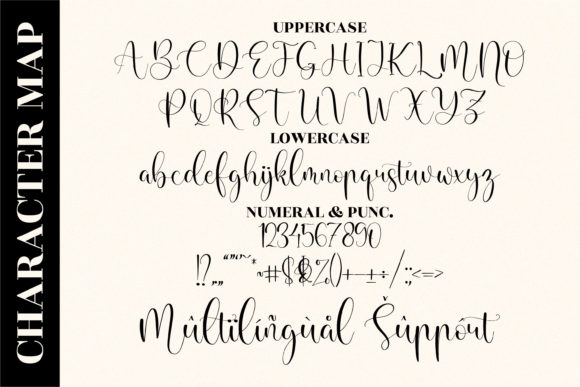 CHARACTER MAP
UPPERCASE
ABCDEFGHIJKLMNO
PQRSTUVWXYZ
LOWERCASE
abcdefghijklmnopqrstuvwxyz
NUMERAL & PUNC.
1234567890
!?.,„“”‘’~*#$&%()+-±÷/:;<=>
Mûltïlíñgùål Šûppórt